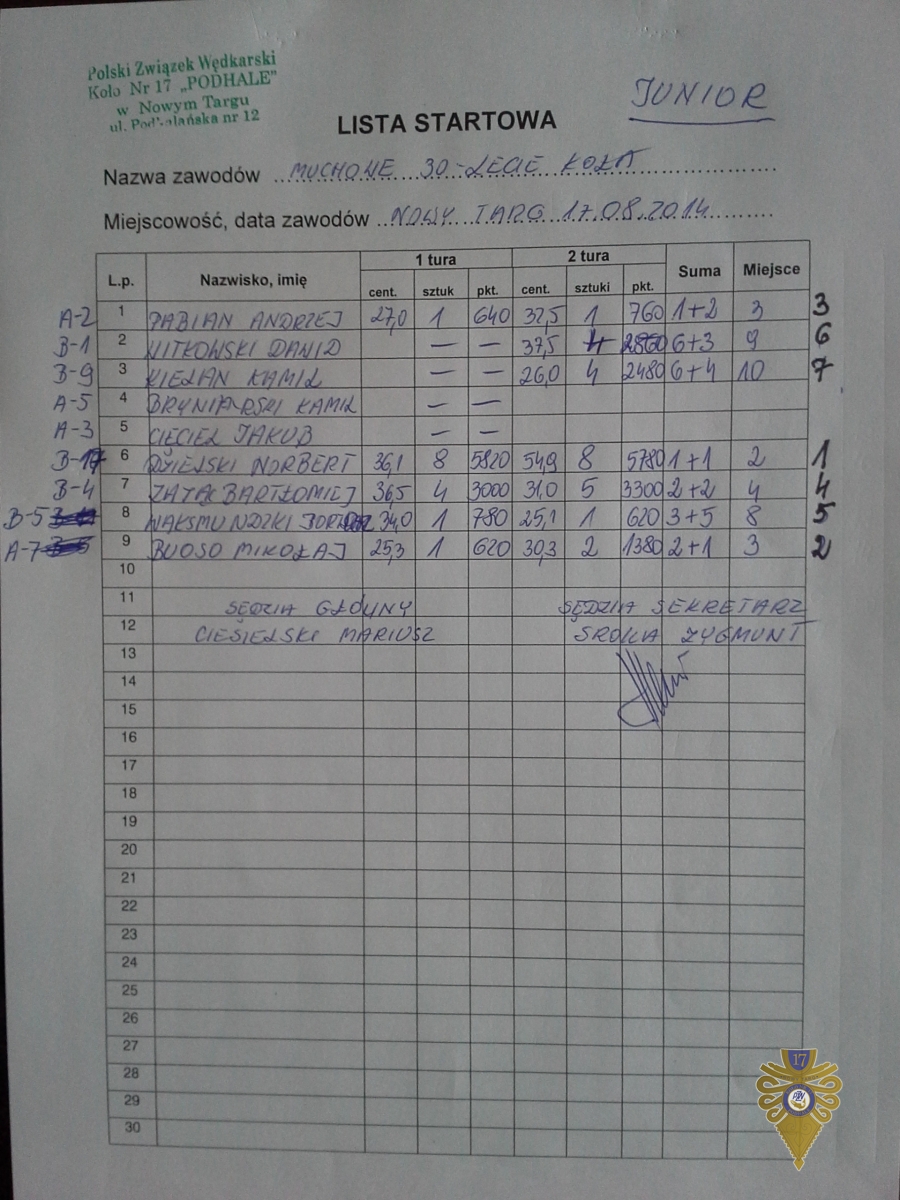 Polski Związek Wędkarski
Koło Nr 17 „PODHALE"
w Nowym Targu
ul. Podhalańska nr 12
JUNIOR
LISTA STARTOWA
Nazwa zawodów MUCHOWE 30-LECIE KOŁA
Miejscowość, data zawodów NOWY TARG 17.08.2014
L.p. Nazwisko, imię 1 tura 2 tura Suma Miejsce
cent. sztuk pkt. cent. sztuki pkt.
A-2 1 PABIAN ANDRZEJ 27,0 1 640 32,5 1 760 1+2 3 3
B-1 2 WITKOWSKI DAWID — — 37,5 4 2860 6+3 9 6
B-9 3 KIELAN KAMIL — — 26,0 4 2480 6+4 10 7
A-5 4 BRYNIARSKI KAMIL — —
A-3 5 CIECIEL JAKUB — —
6 NORBERT 36,1 8 5820 54,9 8 5780 1+1 2 1
B-4 7 BARTŁOMIEJ 36,5 4 3000 31,0 5 3300 2+2 4 4
B-5 8 WAKSMUNDZKI 34,0 1 780 25,1 1 620 3+5 8 5
A-7 9 BUOSO MIKOŁAJ 25,3 1 620 30,3 2 1380 2+1 3 2
10
11 SĘDZIA GŁÓWNY SĘDZIA SEKRETARZ
12 CIESIELSKI MARIUSZ SROKA ZYGMUNT
13
14
15
16
17
18
19
20
21
22
23
24
25
26
27
28
29
30
17